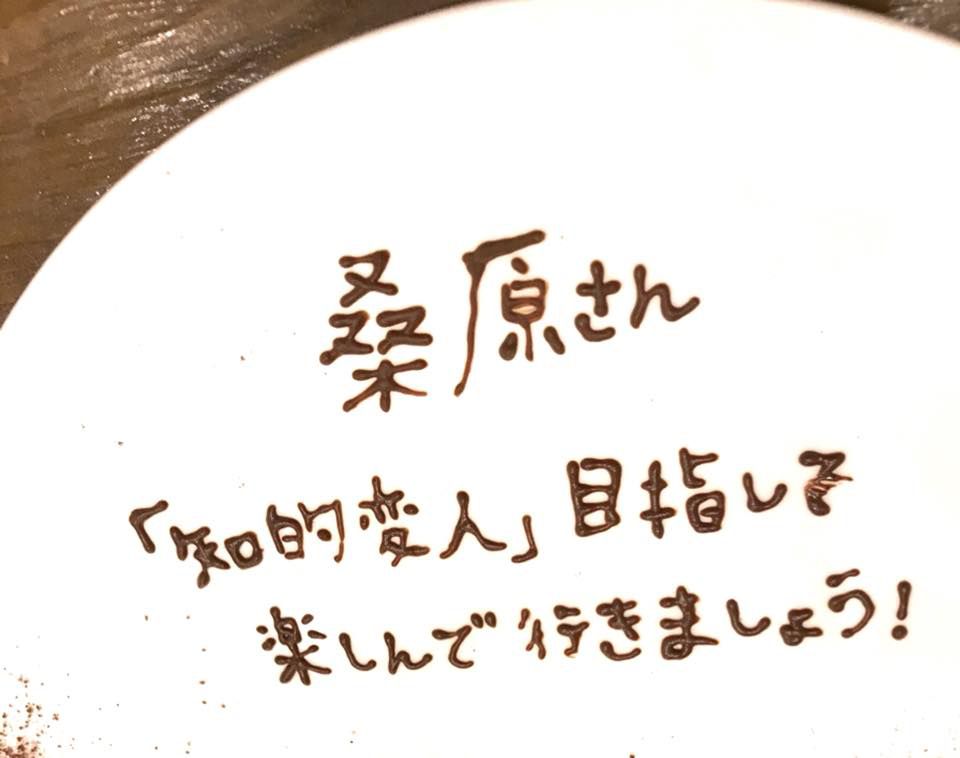 桑原さん
「知的変人」目指して
楽しんで行きましょう!